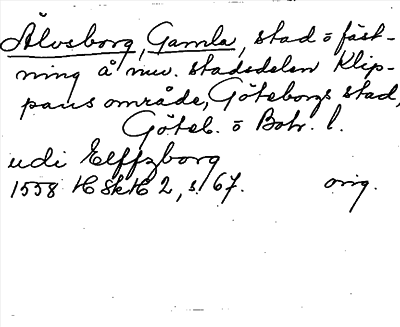 Älvsborg, Gamla, stad o fäst-
ning å nuv. stadsdelen Klip-
pans område, Göteborgs stad,
Göteb. o Boh. l.
udi Elffzborg
1558 HSkH 2, s. 67. orig.